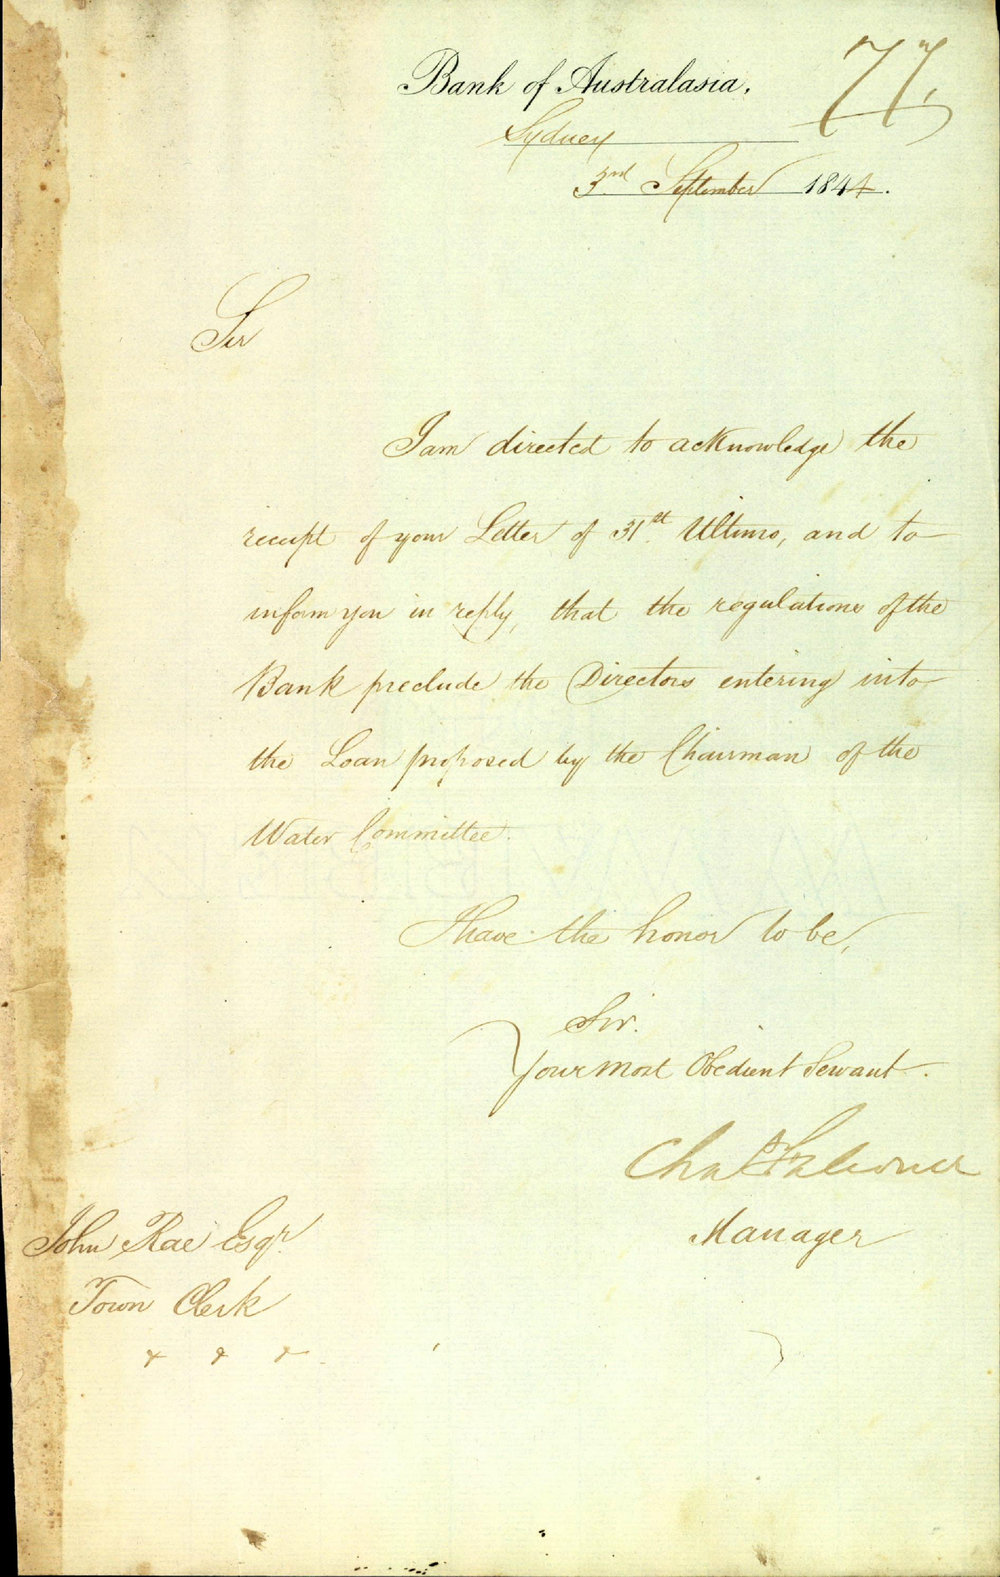 77,
Bank of Australasia.
Sydney
3rd September 1844.
Sir
I am directed to acknowledge the
receipt of your Letter of 31st Ultimo, and to
inform you in reply, that the regulations of the
Bank preclude the Directors entering into
the Loan proposed by the Chairman of the
Water Committee.
I have the honor to be,
Sir.
Your most Obedient Servant.
Chas Falconer
Manager
John Rae Esqr.
Town Clerk
& & &